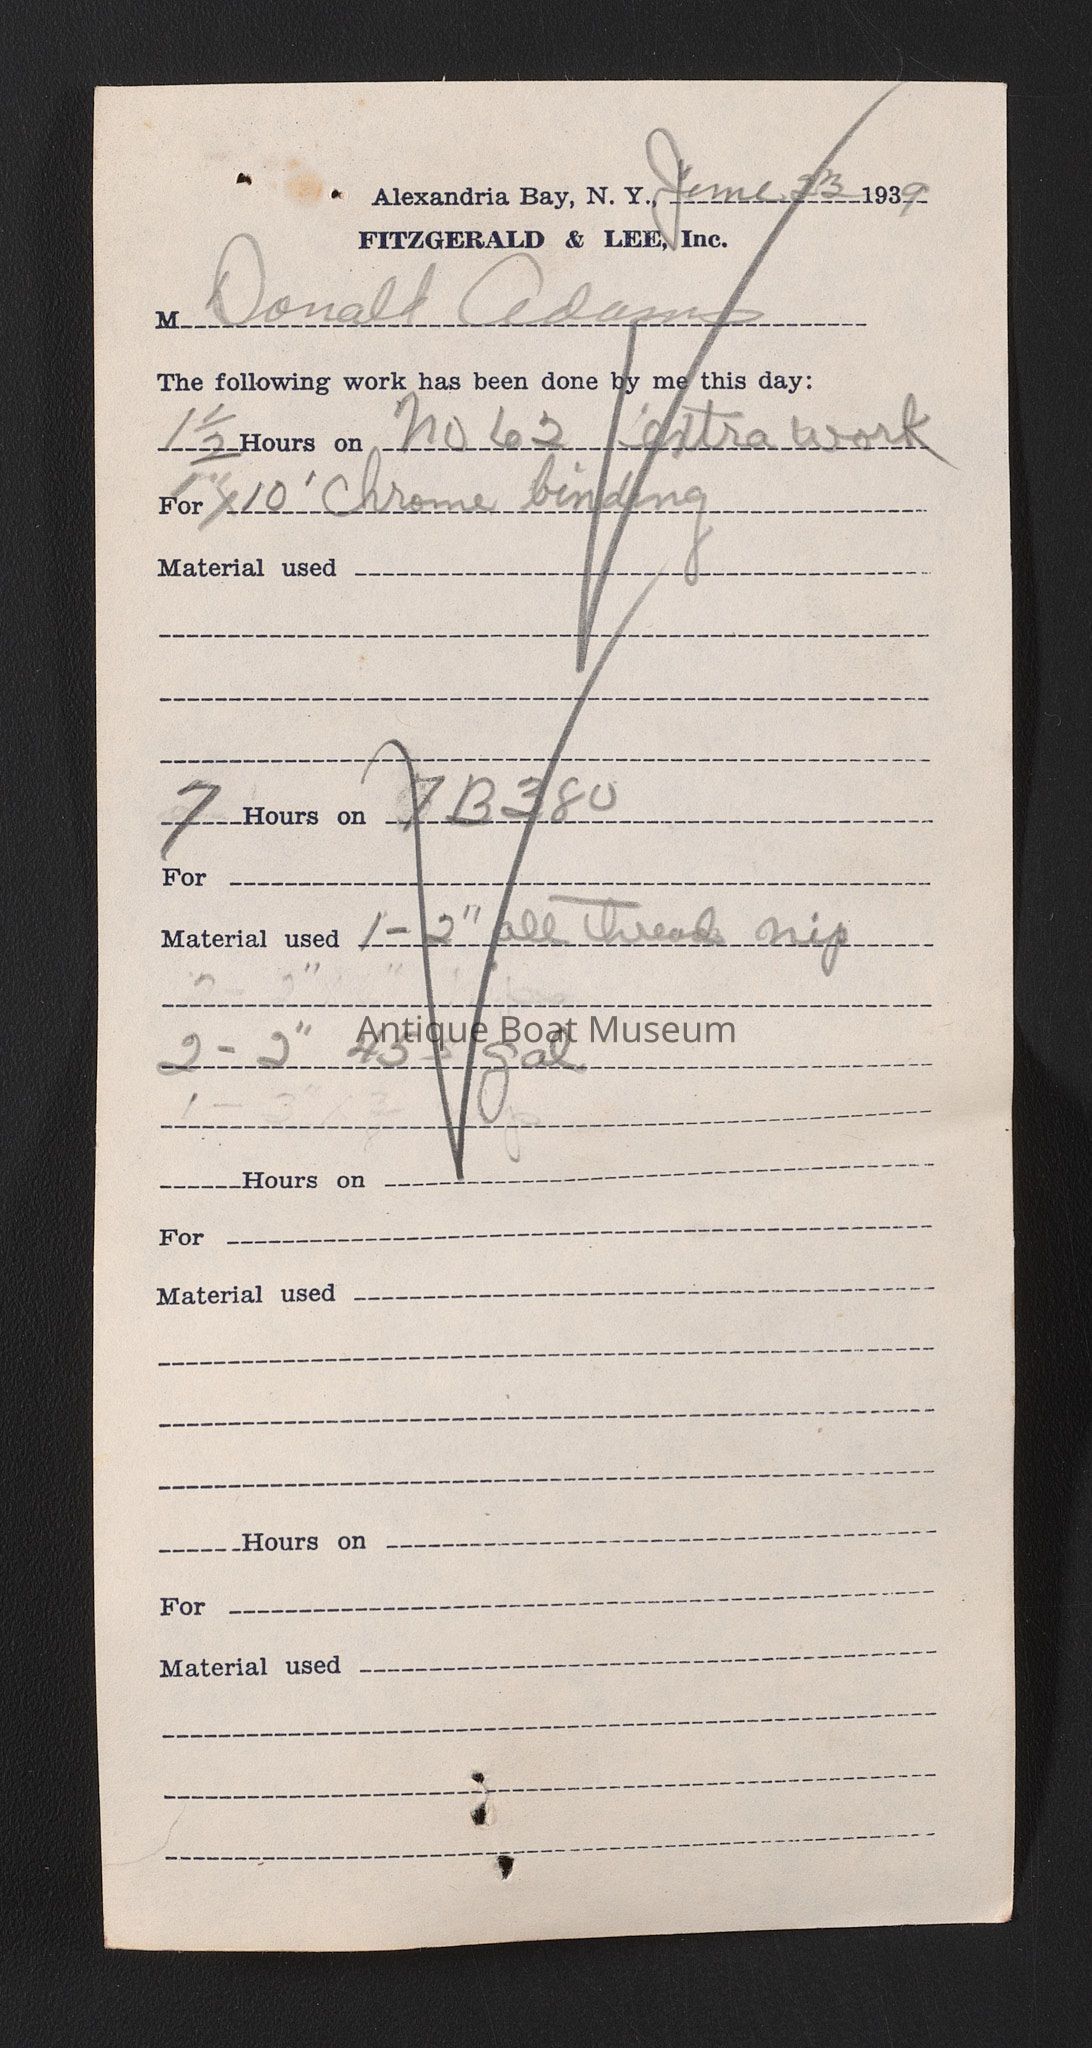 Alexandria Bay, N. Y., June 23 1939
FITZGERALD & LEE, Inc.
M Donald Adams
The following work has been done by me this day:
1 1/2 Hours on No 62 extra work
For x 10' Chrome binding
Material used
7 Hours on 7B380
For
Material used 1 - 2" all Thread nip
2 - 2" 45° gal
Antique Boat Museum
Hours on
For
Material used
Hours on
For
Material used